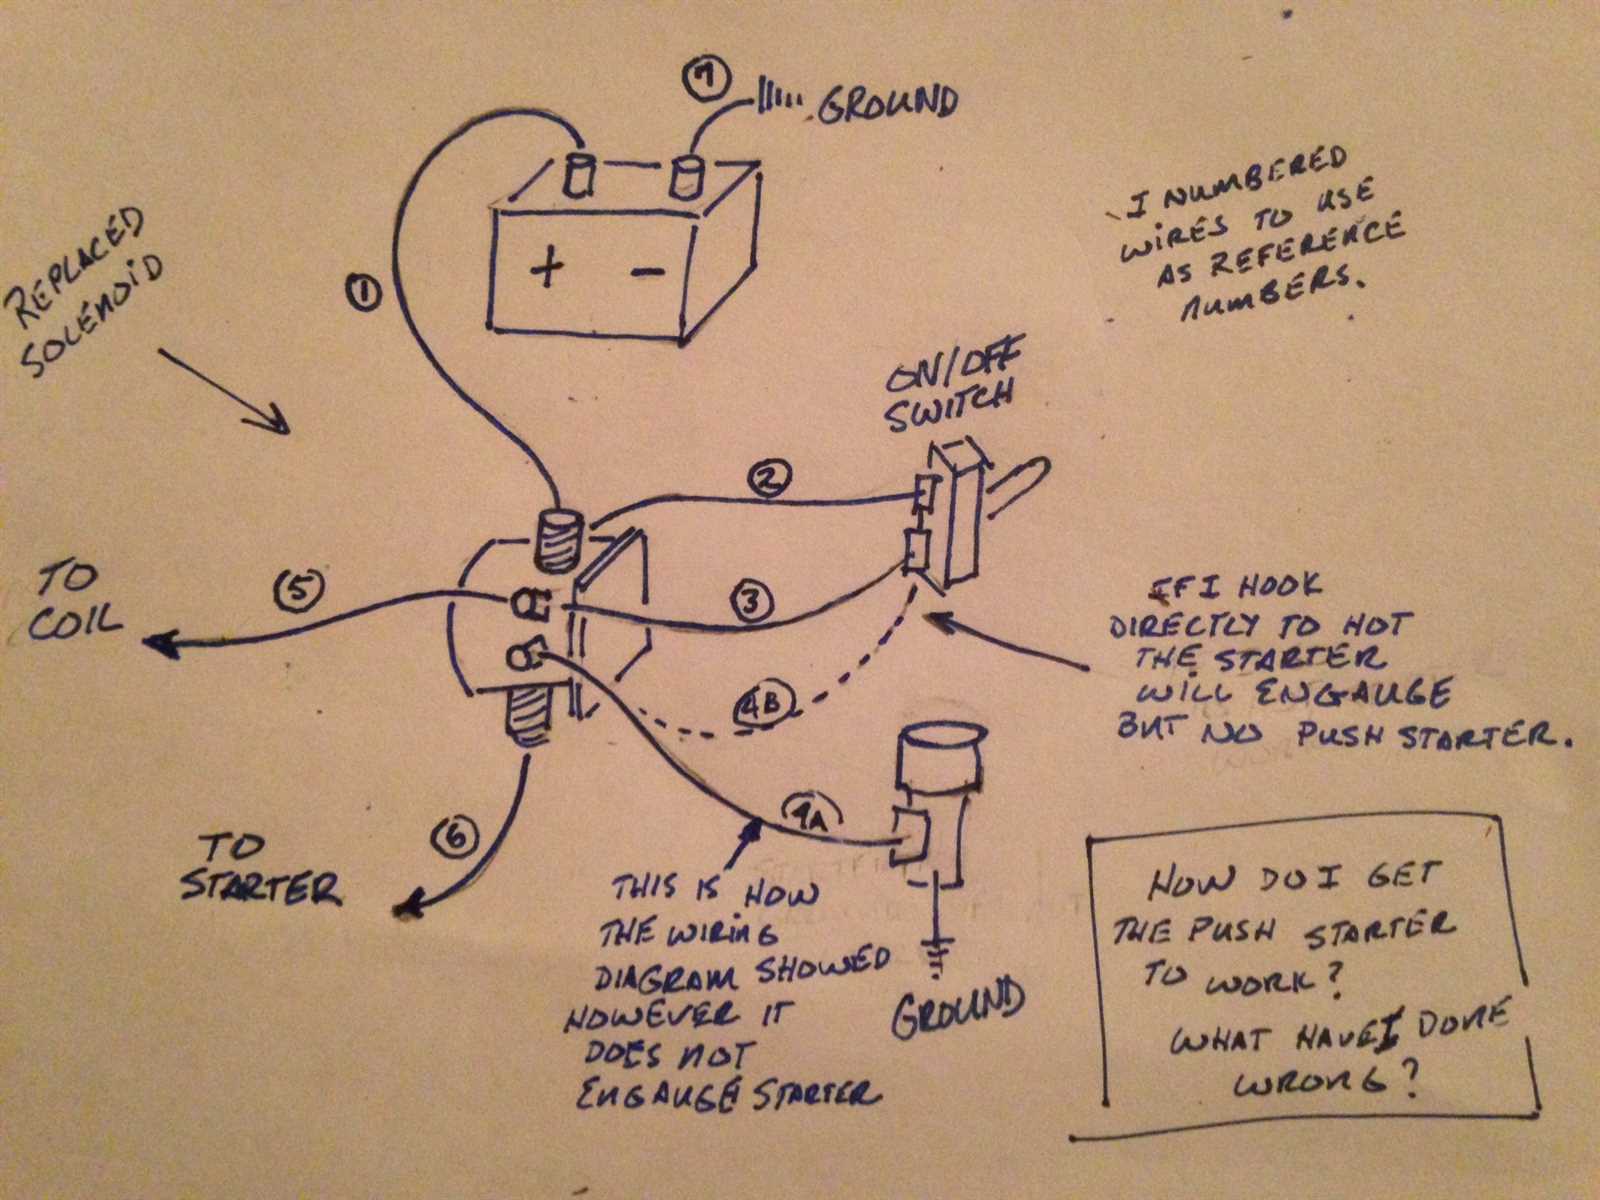 7
GROUND
I NUMBERED
WIRES TO USE
AS REFERENCE
NUMBERS.
REPLACED
SOLENOID
1
+ −
ON/OFF
SWITCH
2
TO
COIL
5
3
IF I HOOK
DIRECTLY TO HOT
THE STARTER
WILL ENGAUGE
BUT NO PUSH STARTER.
4B
TO
STARTER
6
4A
THIS IS HOW
THE WIRING
DIAGRAM SHOWED
HOWEVER IT
DOES NOT
ENGAUGE STARTER
GROUND
HOW DO I GET
THE PUSH STARTER
TO WORK?
WHAT HAVE I DONE
WRONG?